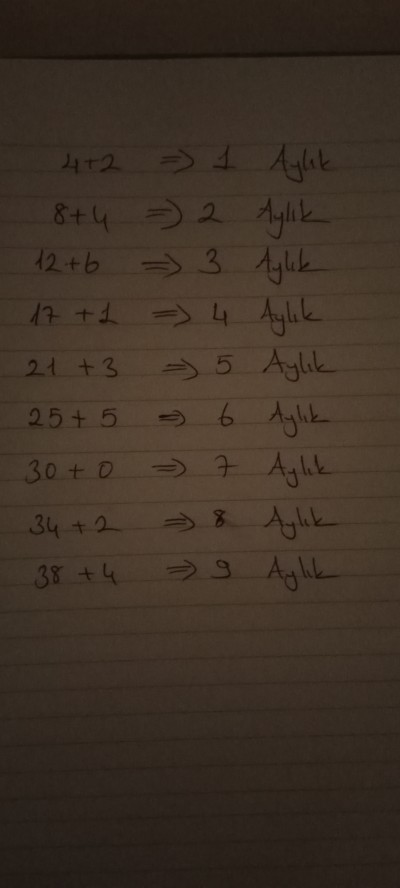 4+2 => 1 Aylık
8+4 => 2 Aylık
12+6 => 3 Aylık
17 +1 => 4 Aylık
21 +3 => 5 Aylık
25+ 5 => 6 Aylık
30 + 0 => 7 Aylık
34 +2 => 8 Aylık
38 +4 => 9 Aylık